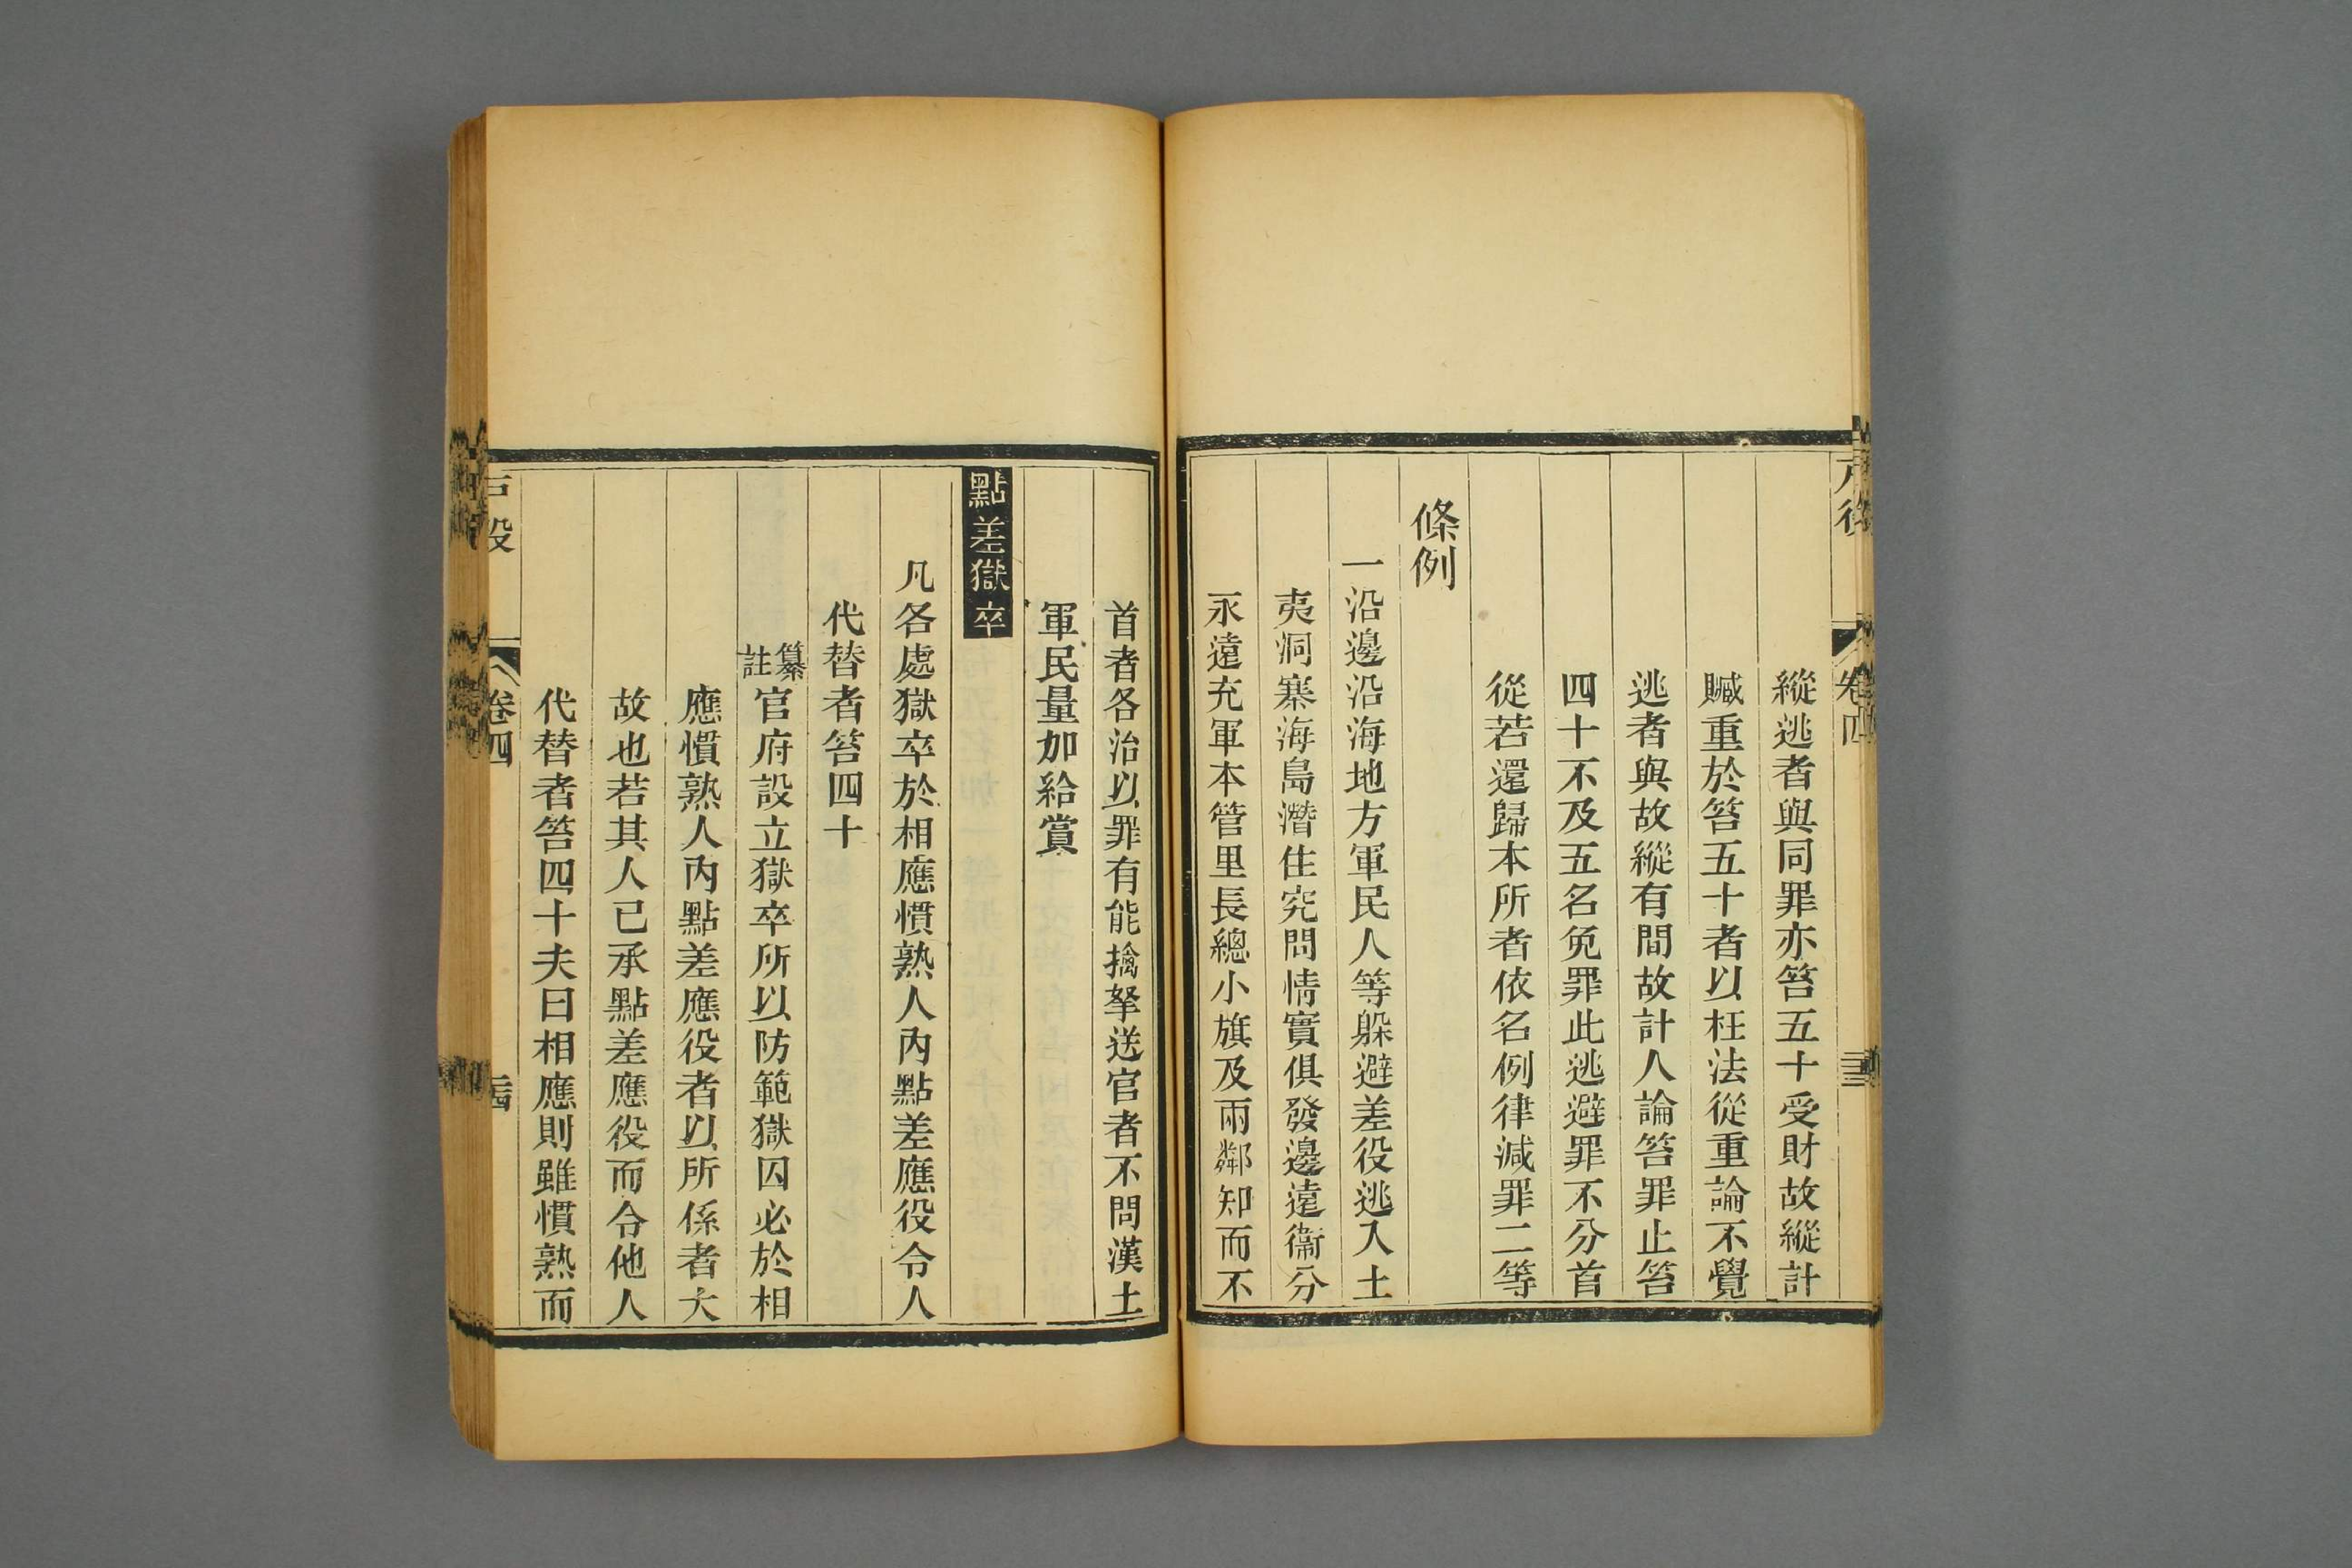 縱逃者與同罪亦笞五十受財故縱計
贓重於笞五十者以枉法從重論不覺
逃者與故縱有間故計人論笞罪止笞
四十不及五名免罪此逃避罪不分首
從若還歸本所者依名例律減罪二等
條例
一沿邊沿海地方軍民人等躲避差役逃入土
夷洞寨海島潛住究問情實俱發邊遠衞分
永遠充軍本管里長總小旗及兩鄰知而不
首者各治以罪有能擒拏送官者不問漢土
軍民量加給賞
點差獄卒
凡各處獄卒於相應慣熟人內點差應役令人
代替者笞四十
纂註
官府設立獄卒所以防範獄囚必於相
應慣熟人內點差應役者以所係者大
故也若其人已承點差應役而令他人
代替者笞四十夫曰相應則雖慣熟而
卷四